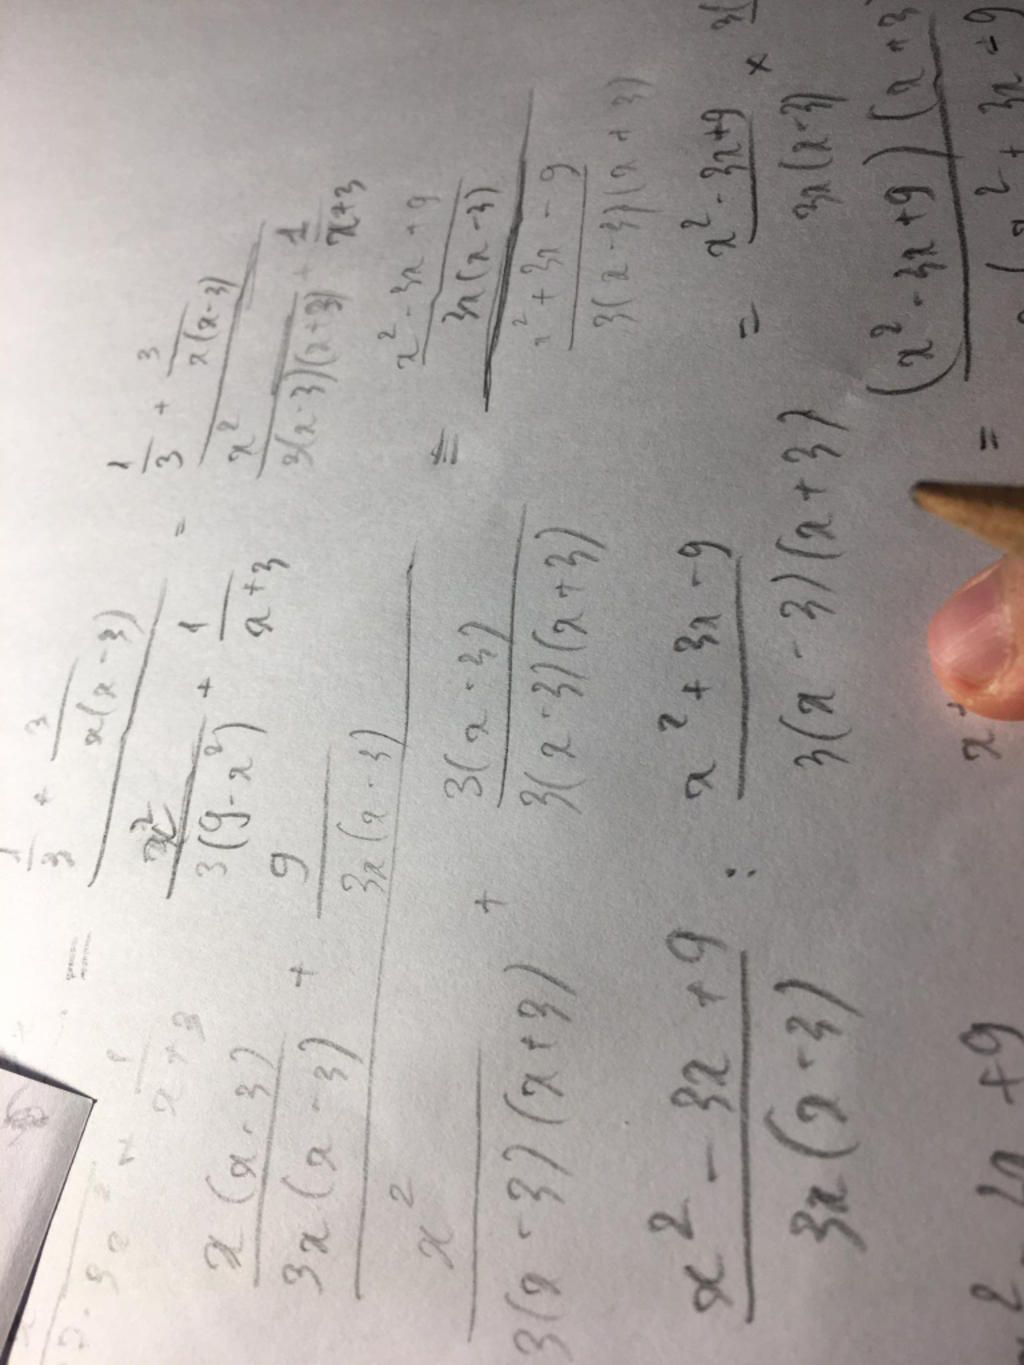 = 1/3 + 3/(x(x-3))
x²/(3(9-x²)) + 1/(x+3)
= 1/3 + 3/(x(x-3))
x²/(3(x-3)(x+3)) + 1/(x+3)
x(x-3)/(3x(x-3)) + 9/(3x(x-3))
x²/(3(x-3)(x+3)) + 3(x-3)/(3(x-3)(x+3))
= x²-3x+9/(3x(x-3))
x²+3x-9/(3(x-3)(x+3))
x²-3x+9/(3x(x-3)) : x²+3x-9/(3(x-3)(x+3)) = x²-3x+9/(3x(x-3)) × 3(
= (x²-3x+9)(x+3
(x²+3x-9